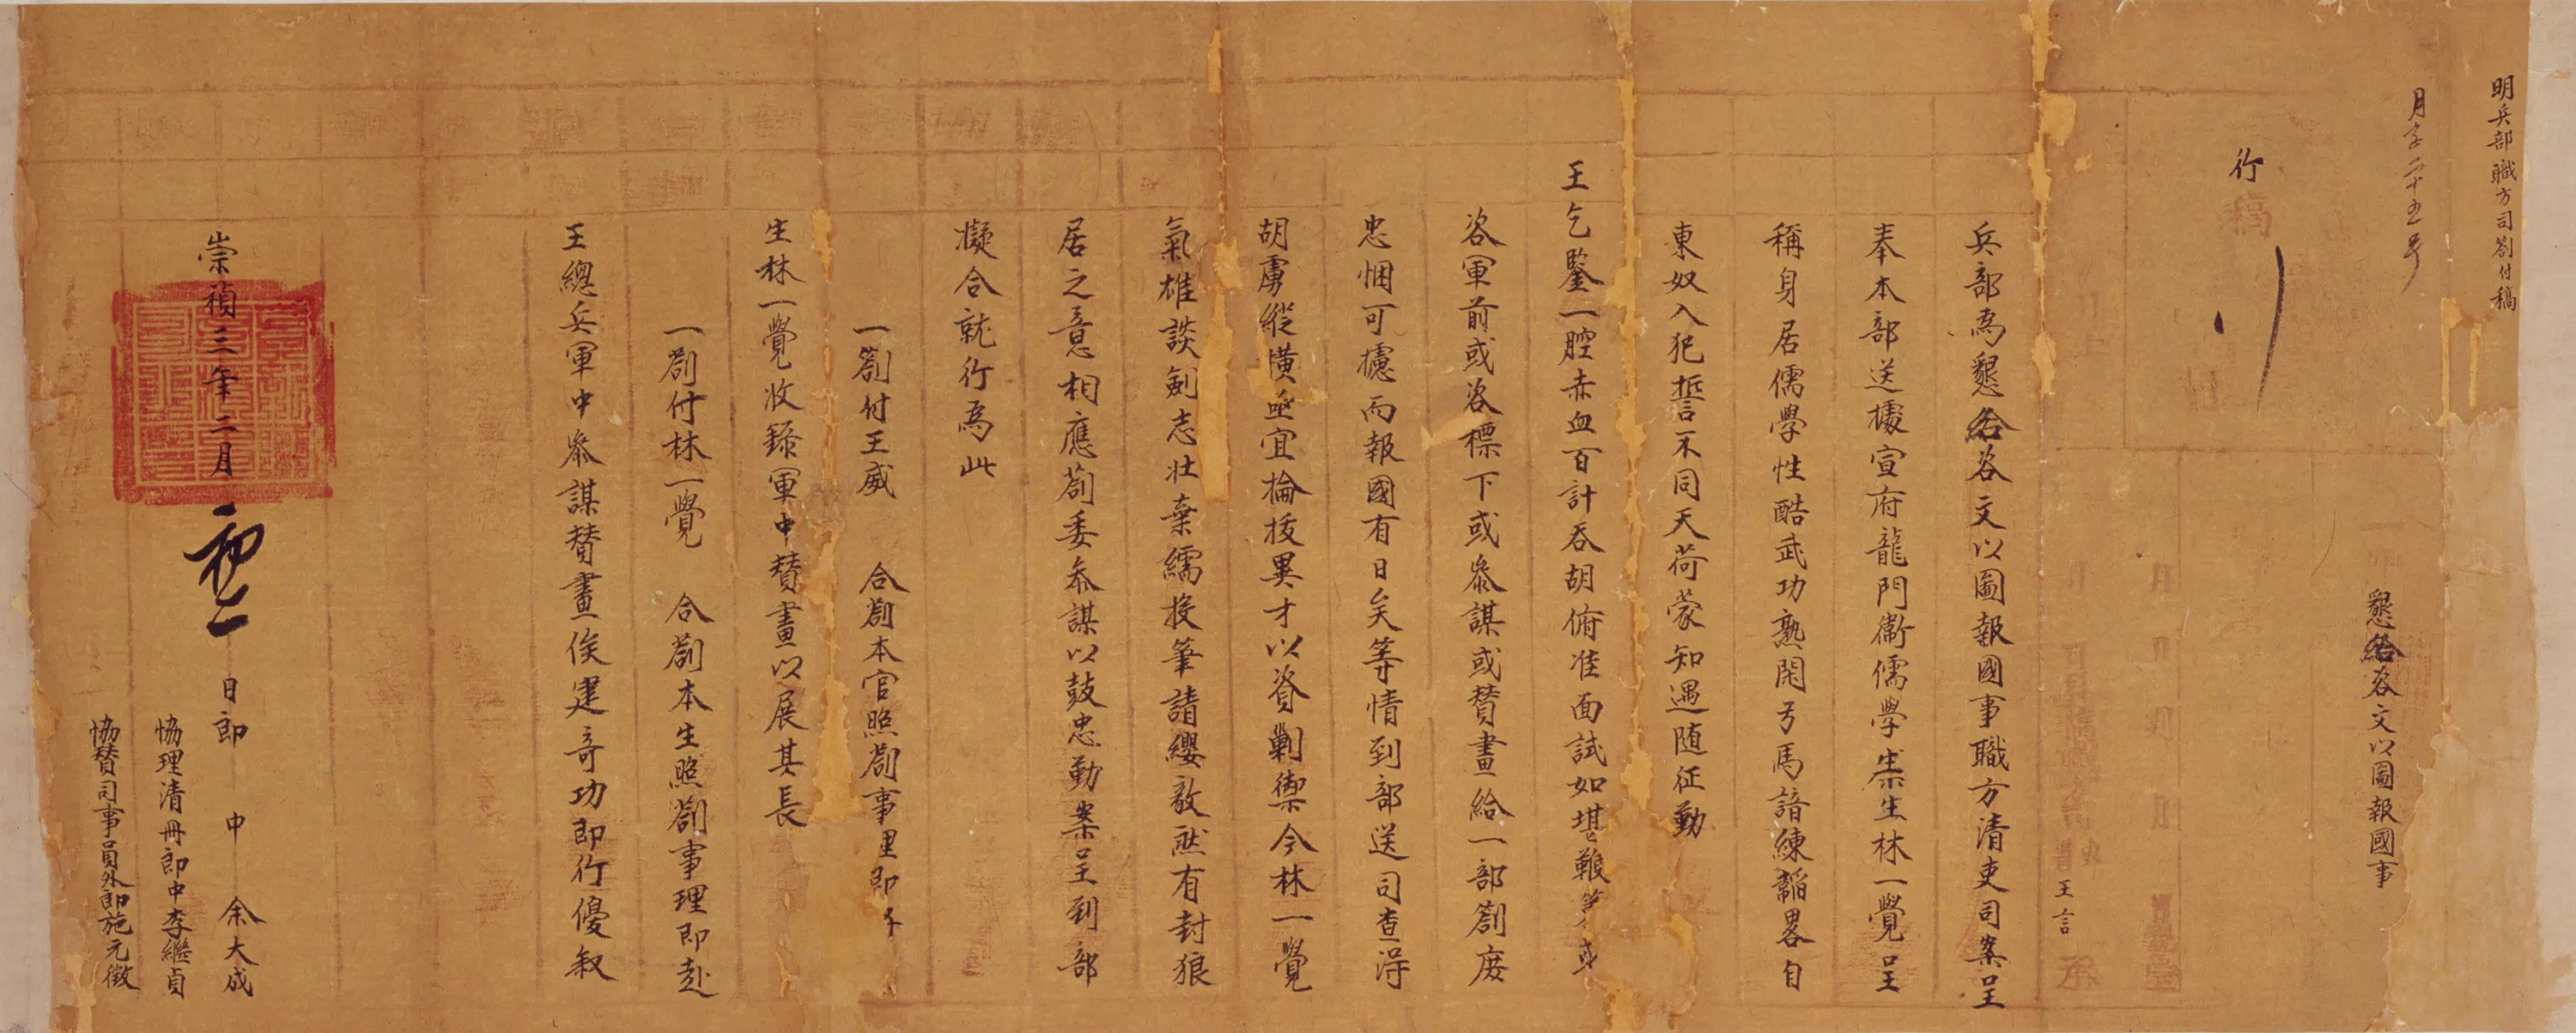 明兵部職方司劄付稿
月字二十五号
懇給咨文以圖報國事
行
稿
王言
兵部爲懇給咨文以圖報國事職方清吏司案呈
奉本部送據宣府龍門衛儒學生林一覺呈
稱身居儒學性酷武功熟閑弓馬諳練韜畧自
東奴入犯誓不同天荷蒙知遇随征勤
王乞鑒一腔赤血百計吞胡俯准面試如堪鞭弟或
咨軍前或咨標下或叅謀或賛畫給一部劄庻
忠悃可攄而報國有日矣等情到部送司查淂
胡虜縱横亟宜掄拔異才以資剿禦今林一覺
氣雄談劍志壯棄繻投筆請纓敵㷼有封狼
居之意相應劄委叅謀以鼓忠勤案呈到部
擬合就行爲此
一劄付王威 合劄本官照劄事理即予
生林一覺收錄軍中賛畫以展其長
一劄付林一覺 合劄本生照劄事理即赴
王總兵軍中叅謀賛畫俟建奇功即行優叙
崇禎三年二月初二日郎中余大成
協理清冊郎中李繼貞
協賛司事員外郎施元徵